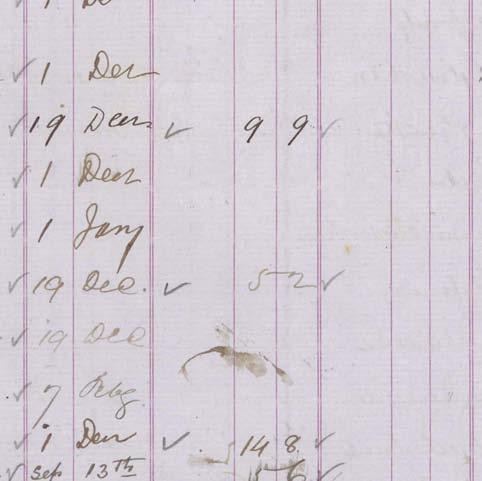 1 Decr
19 Decr 9 9
1 Decr
1 Jany
19 Dec. 5 2
19 Dec
7 Feby
1 Decr 14 8
Sep 13th 15 6